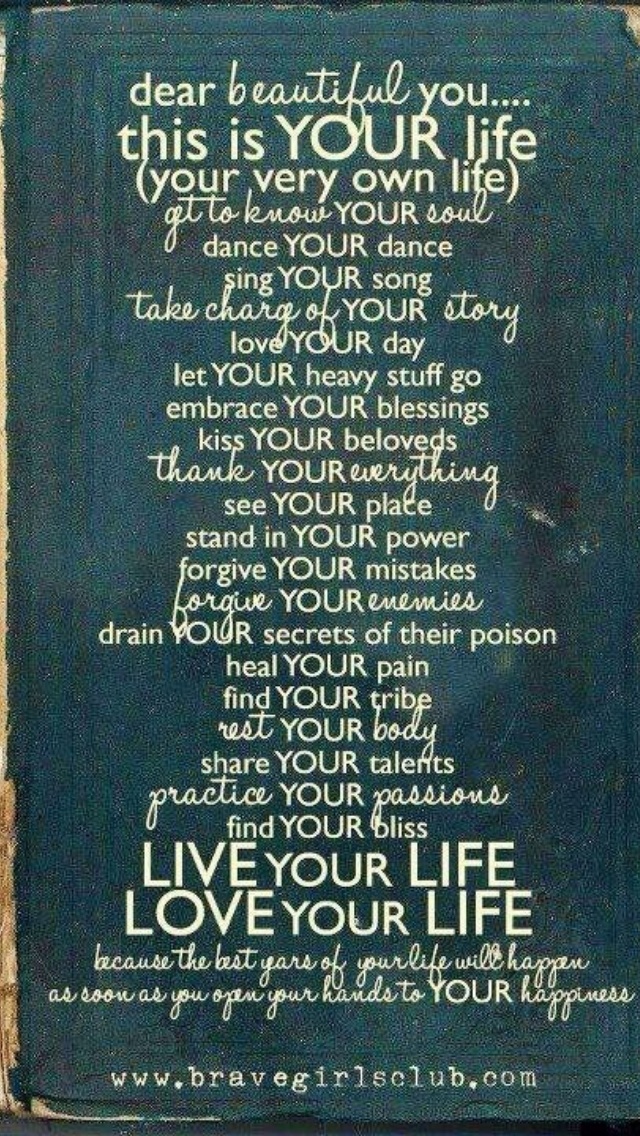 dear beautiful you....
this is YOUR life
(your very own life)
get to know YOUR soul
dance YOUR dance
sing YOUR song
take charge of YOUR story
love YOUR day
let YOUR heavy stuff go
embrace YOUR blessings
kiss YOUR beloveds
thank YOUR everything
see YOUR place
stand in YOUR power
forgive YOUR mistakes
forgive YOUR enemies
drain YOUR secrets of their poison
heal YOUR pain
find YOUR tribe
rest YOUR body
share YOUR talents
practice YOUR passions
find YOUR bliss
LIVE YOUR LIFE
LOVE YOUR LIFE
because the best years of your life will happen
as soon as you open your hands to YOUR happiness
www.bravegirlsclub.com